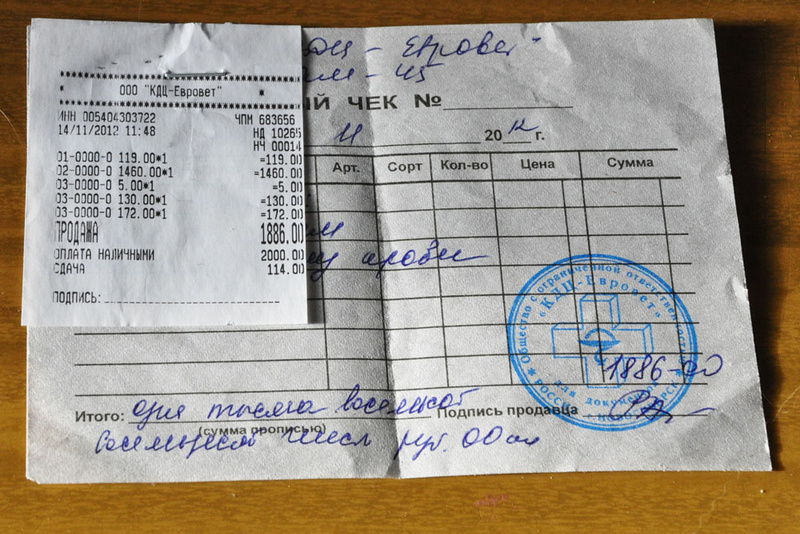 ООО "КДЦ-Евровет"
ИНН 005404303722 ЧПМ 683656
14/11/2012 11:48 НД 10265
НЧ 00014
01-0000-0 119.00*1 =119.00
02-0000-0 1460.00*1 =1460.00
03-0000-0 5.00*1 =5.00
03-0000-0 130.00*1 =130.00
03-0000-0 172.00*1 =172.00
ПРОДАЖА 1886.00
ОПЛАТА НАЛИЧНЫМИ 2000.00
СДАЧА 114.00
ПОДПИСЬ:
- Евровет"
ЫЙ ЧЕК №
11 2012 г.
Арт. Сорт Кол-во Цена Сумма
Общество с ограниченной ответственностью
«КДЦ-Евровет»
для документов
РОССИЯ
1886-00
Итого: одна тысяча восемьсот Подпись продавца
(сумма прописью)
восемьдесят шесть руб. 00 коп